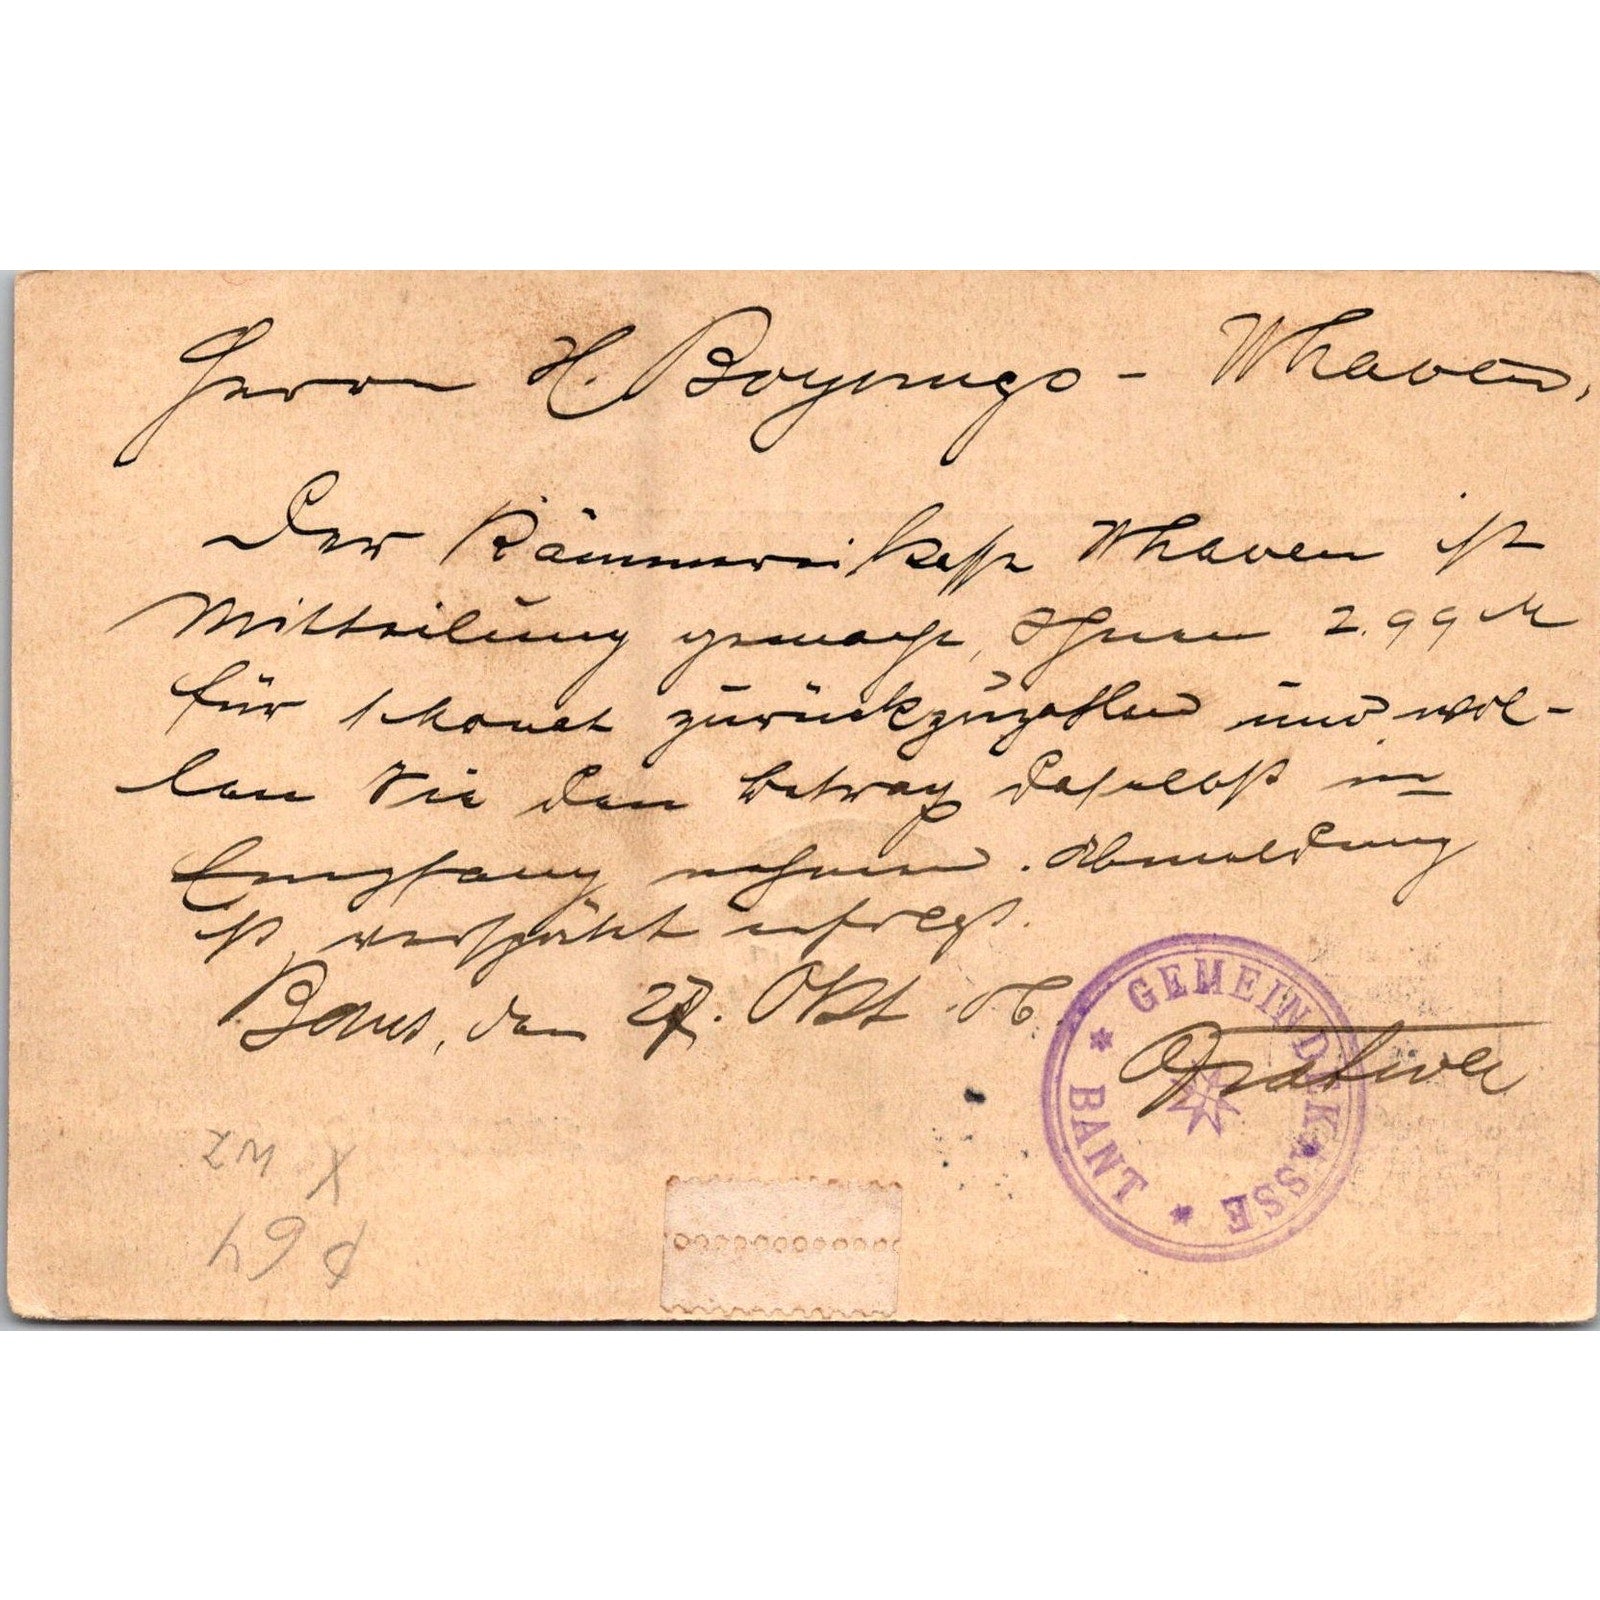 Herrn H. Boyungs - Whaven,
Der Kämmereikasse Whaven ist
Mitteilung gemacht, Ihnen 2.99 M
für 1 Monat zurückzuzahlen und wol-
len Sie den Betrag daselbst in
Empfang nehmen. Abmeldung
ist verspätet erfolgt.
Bant, den 27. Okt. 06
* GEMEINDEKASSE * BANT
X WZ
P 64